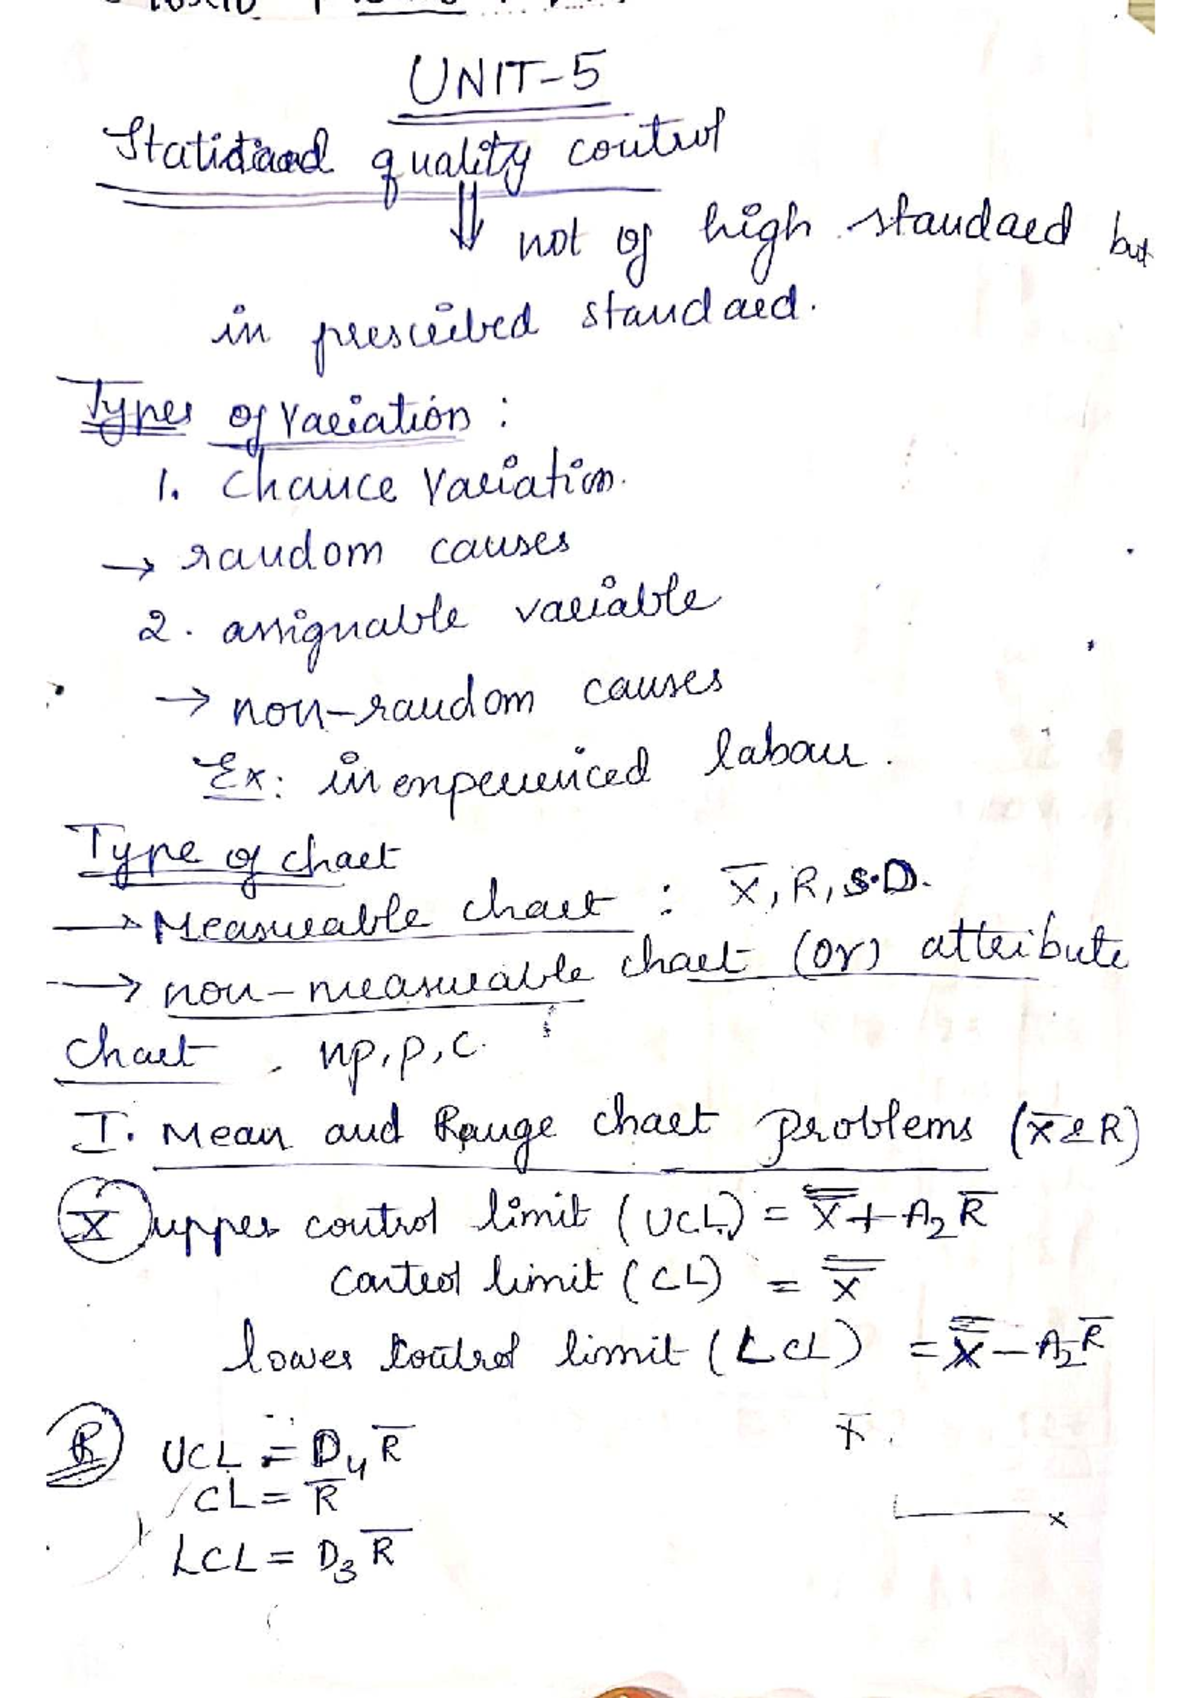 UNIT-5
Statistical quality control
⇓ not of high standard but
in prescribed standard.
Types of Variation :
1. Chance Variation.
→ random causes
2. assignable variable
→ non-random causes
Ex: inexperienced labour.
Type of chart
→ Measurable chart : X̄, R, S.D.
→ non-measurable chart (or) attribute
chart . np, p, c.
I. Mean and Range chart problems (X̄ & R)
X̄ upper control limit (UCL) = X̿ + A₂R̄
Control limit (CL) = X̿
lower control limit (LCL) = X̿ − A₂R̄
R UCL = D₄R̄
CL = R̄
LCL = D₃R̄
x